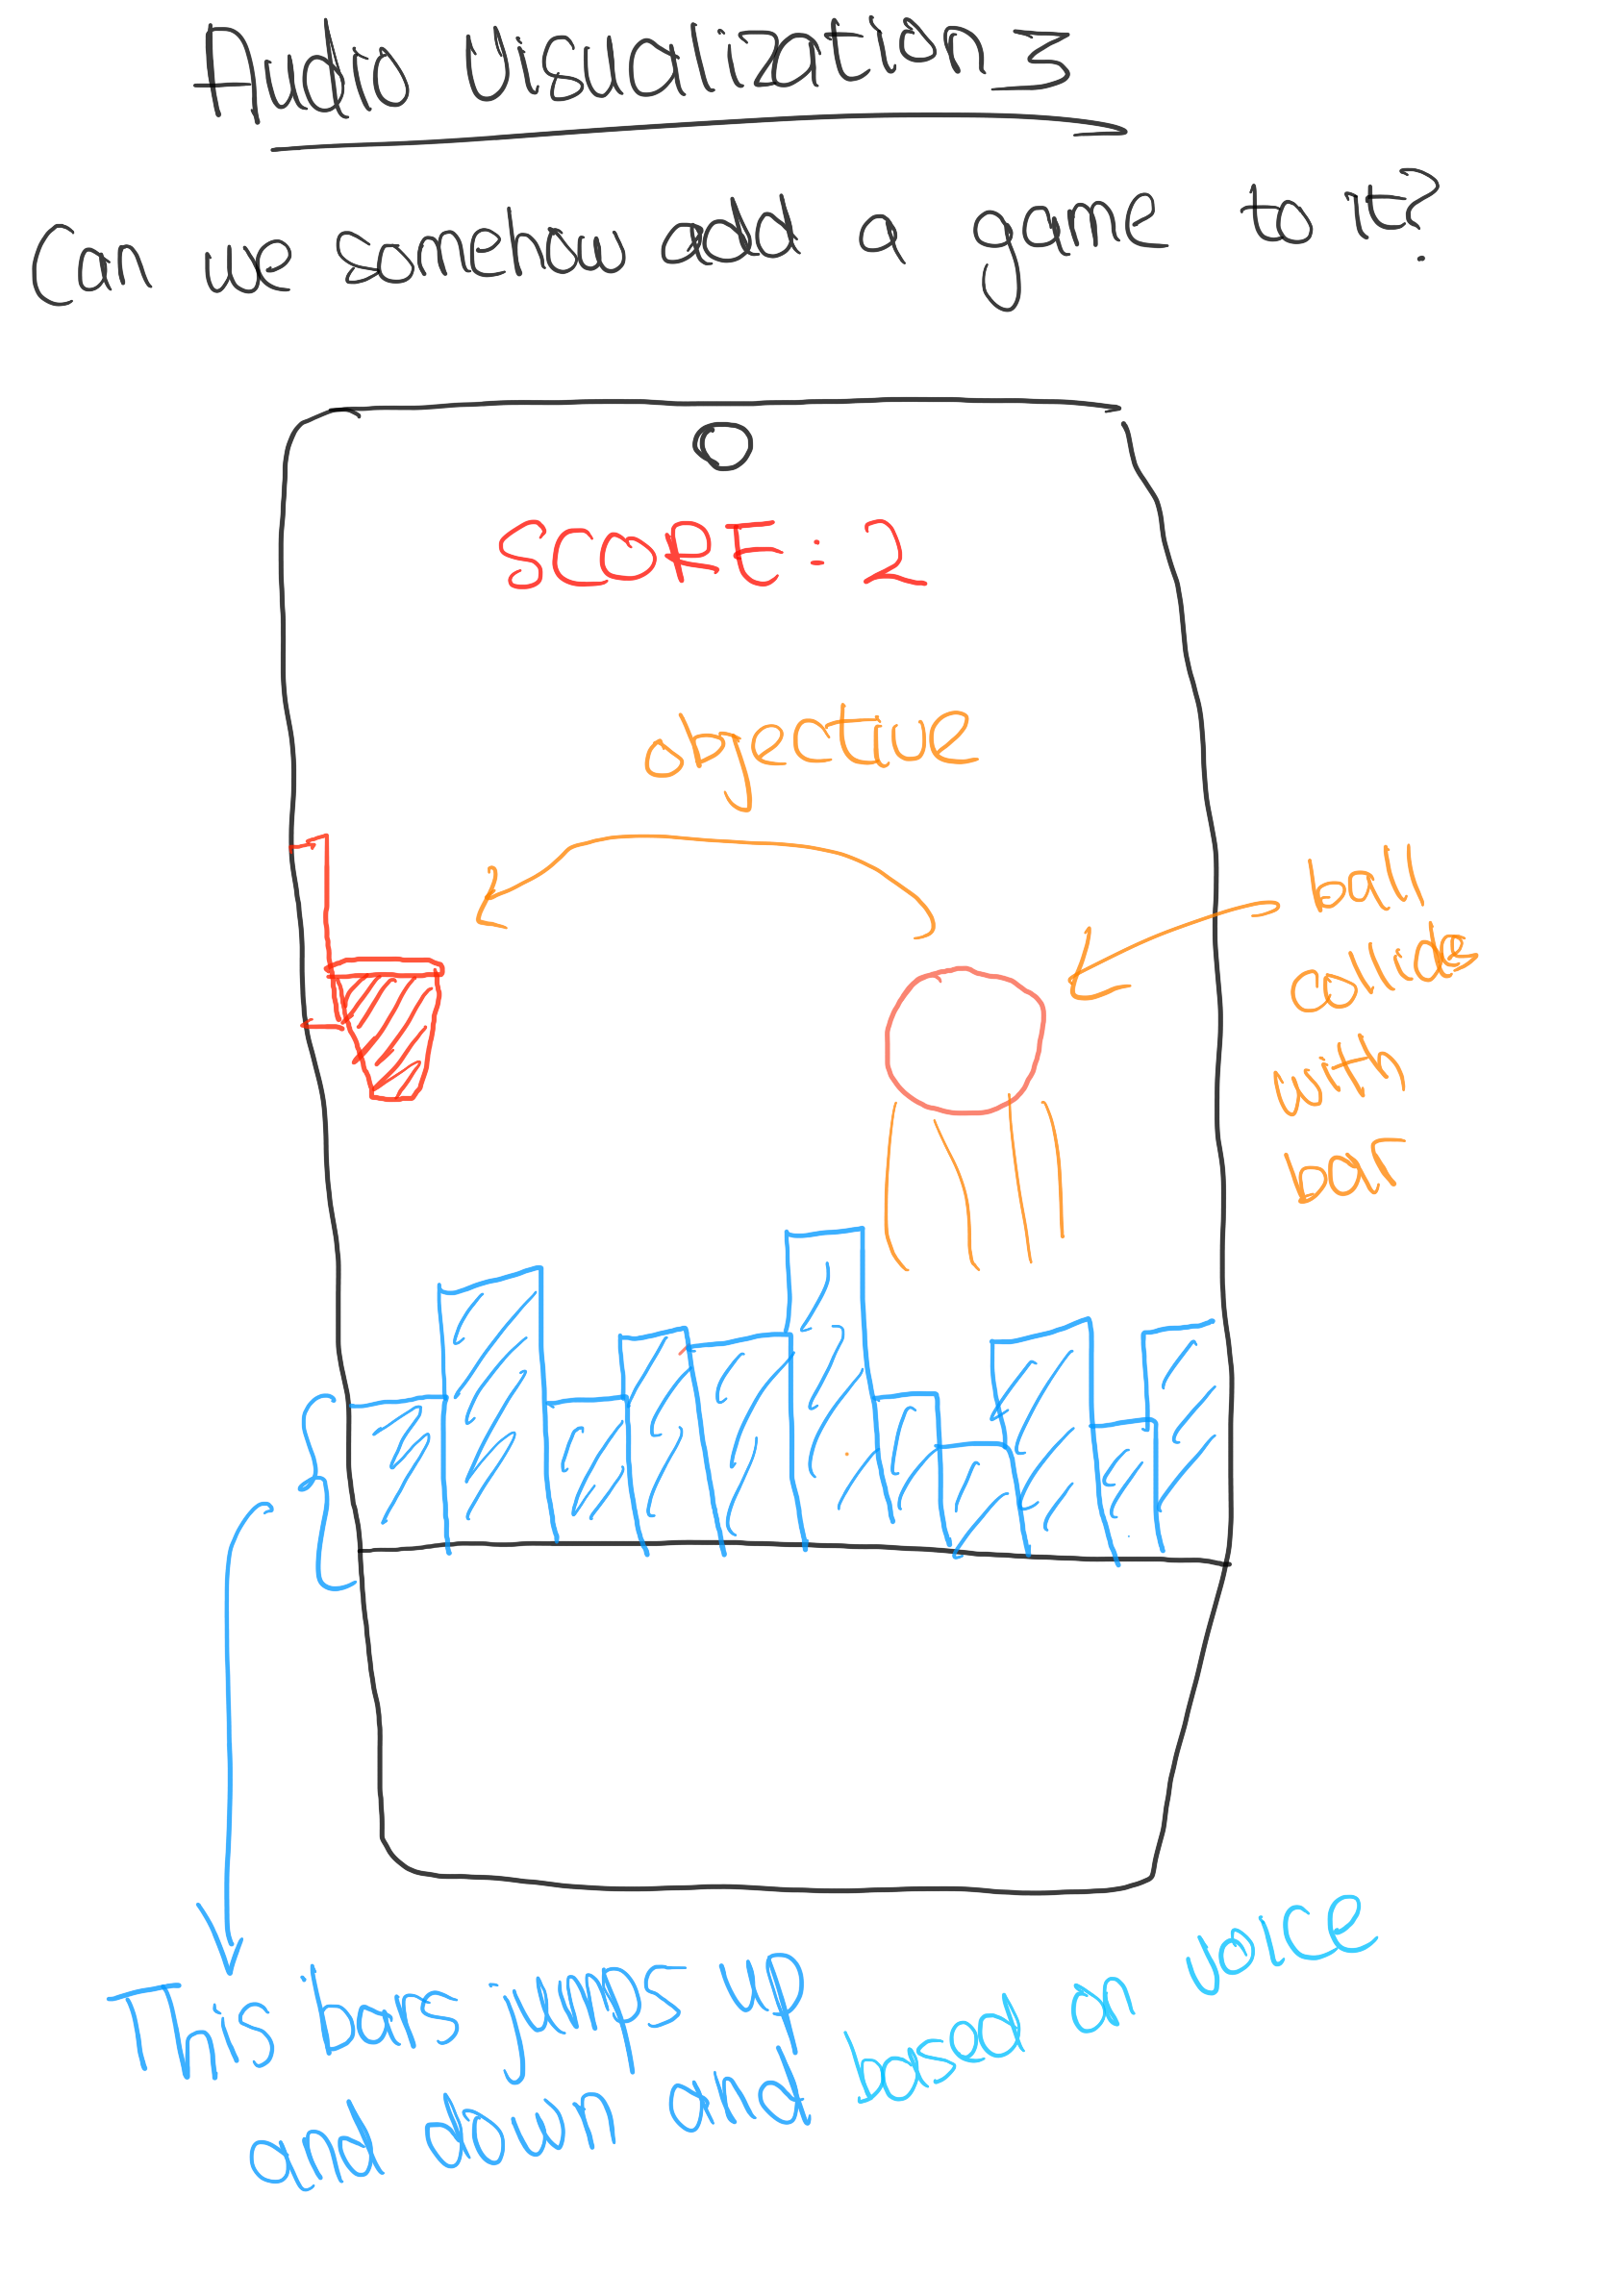 Audio Visualization 3
Can we somehow add a game to it?
SCORE: 2
objective
ball
collides
with
bar
This bars jumps up
and down and based on voice